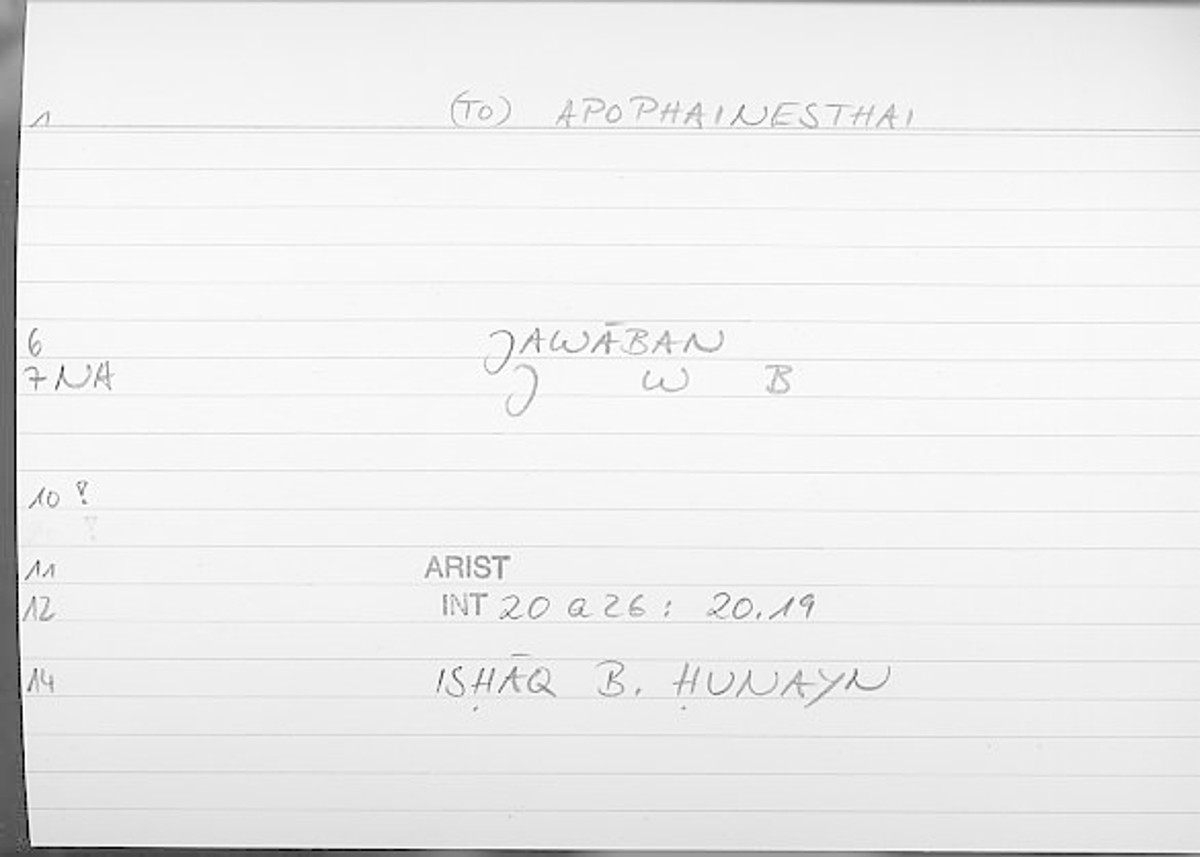 1 (TO) APOPHAINESTHAI
6 JAWĀBAN
7 NA J W B
10 !
11 ARIST
12 INT 20 a 26 : 20.19
14 ISḤĀQ B. ḤUNAYN